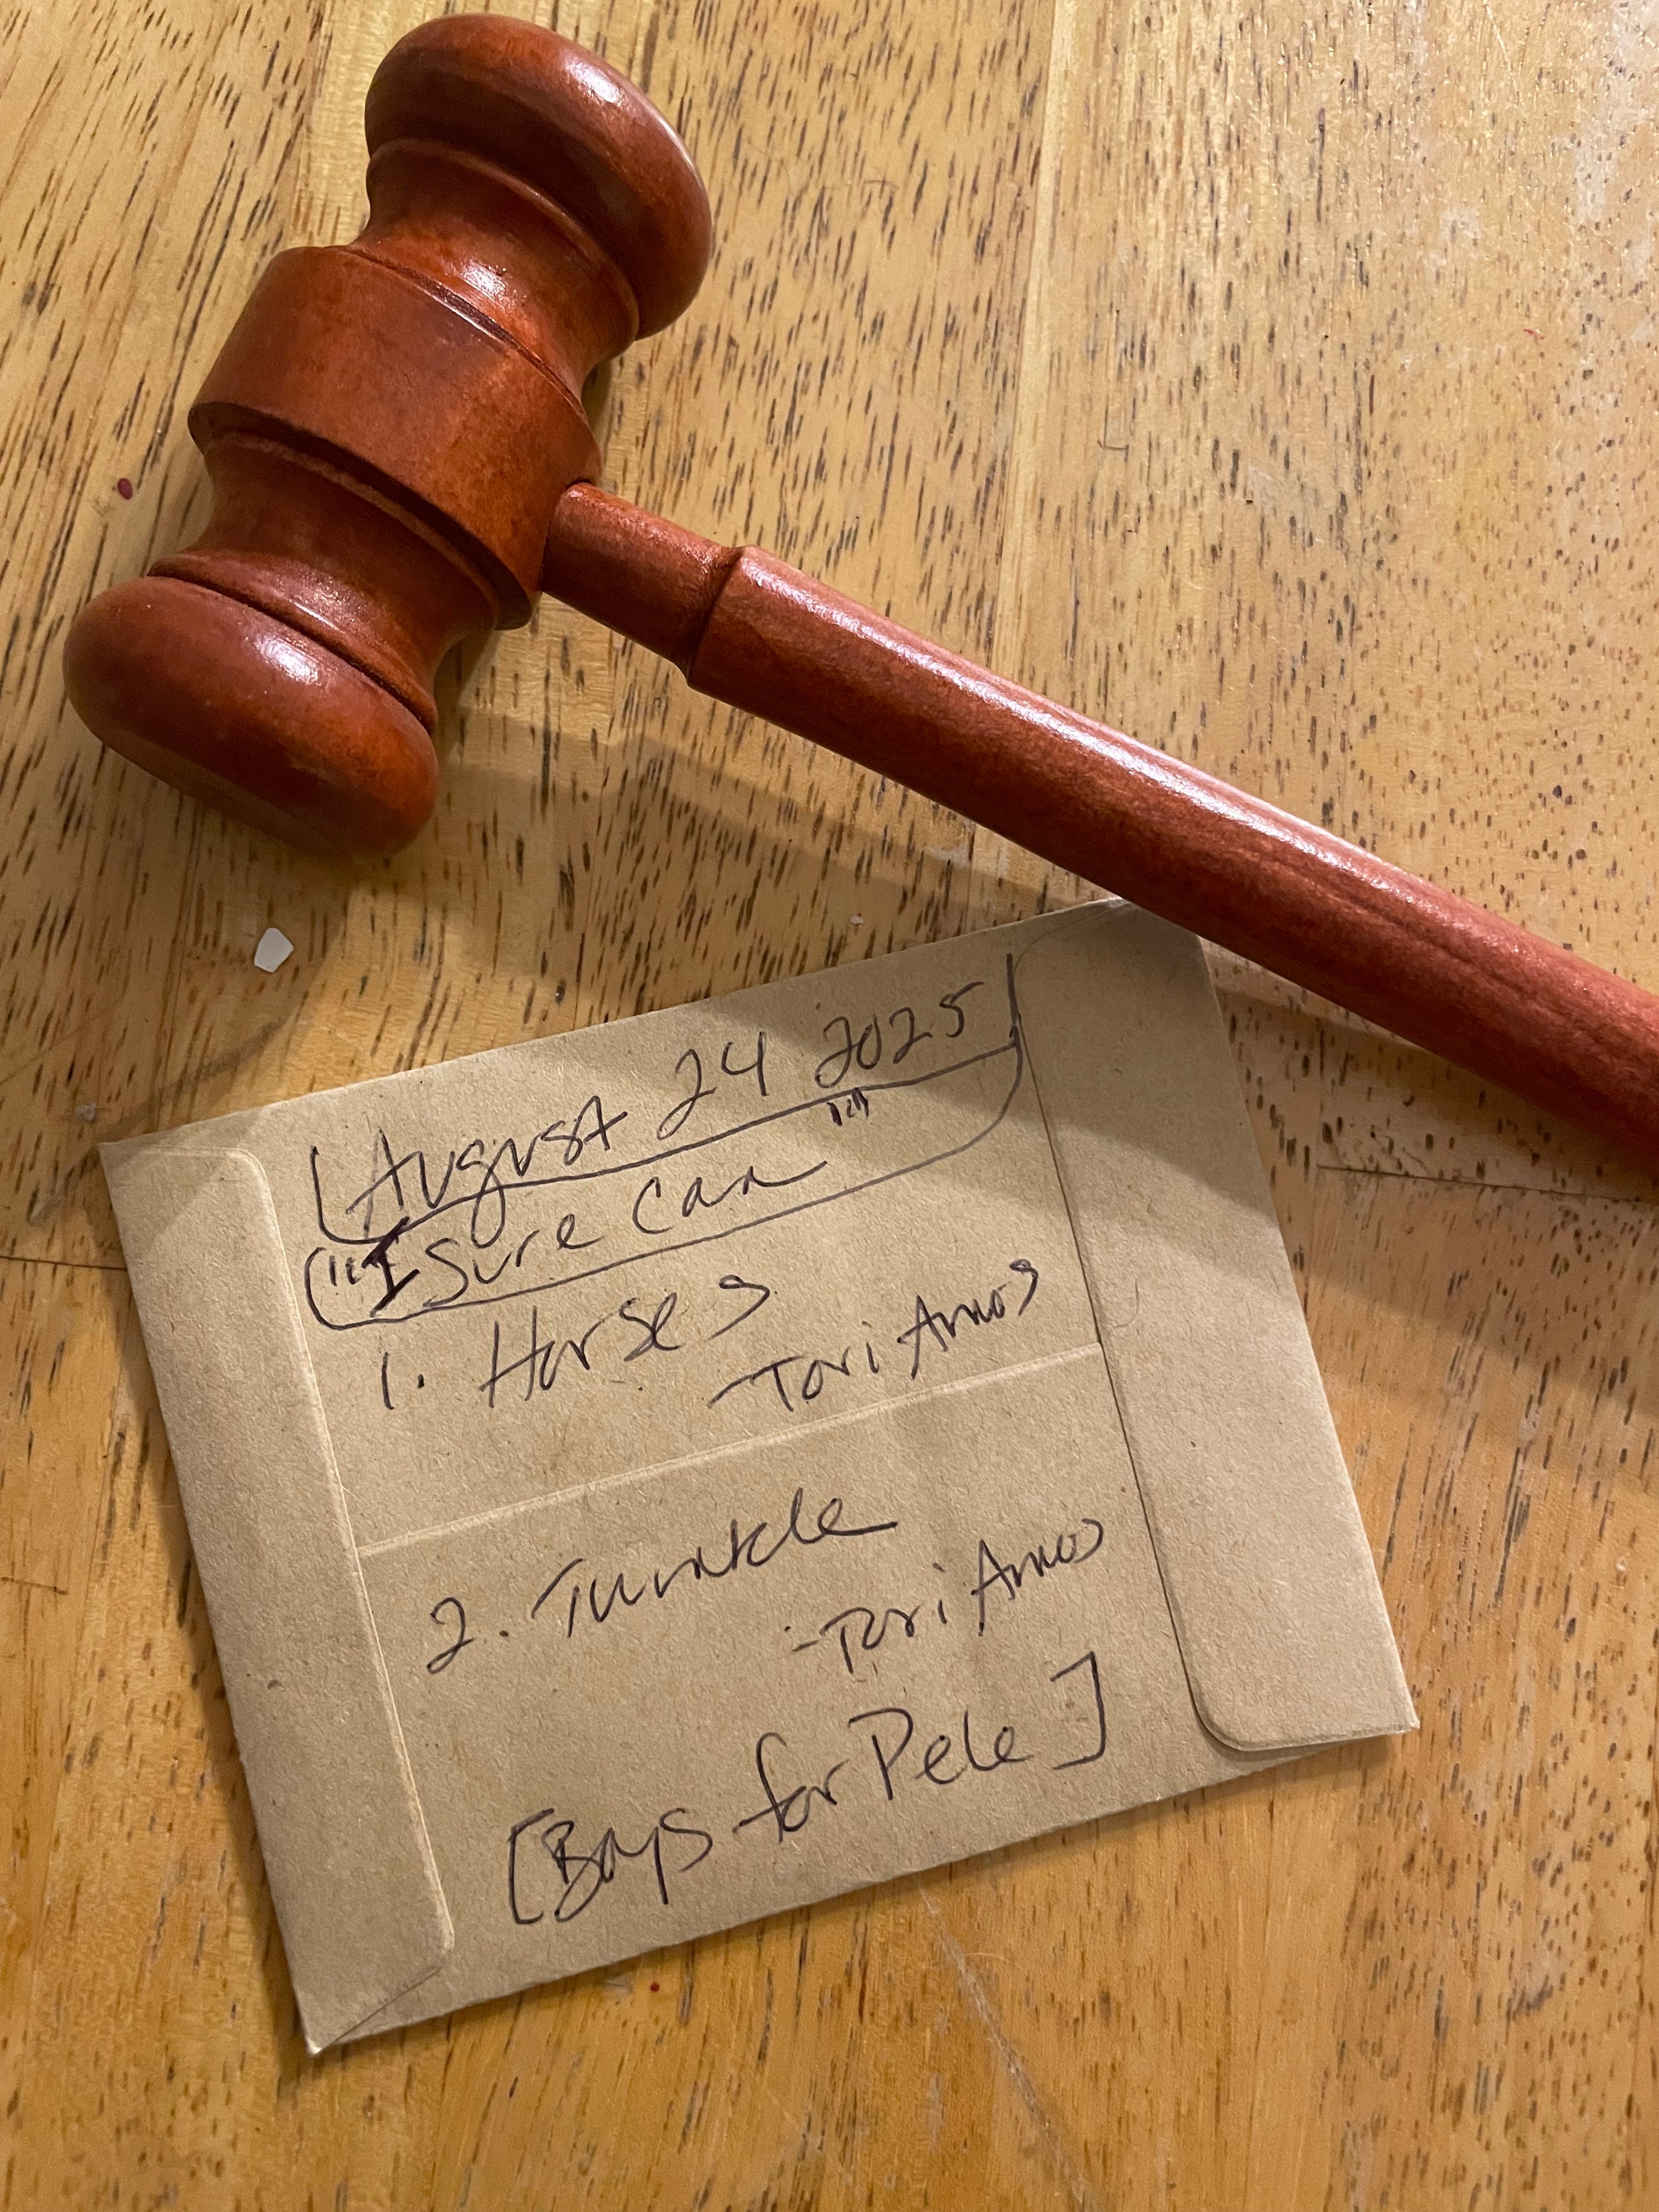 August 24 2025
"I Sure Can"
1. Horses
-Tori Amos
2. Twinkle
-Tori Amos
[Boys for Pele]